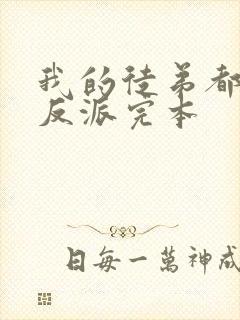 我的徒弟都
反派完本
日每一萬神成